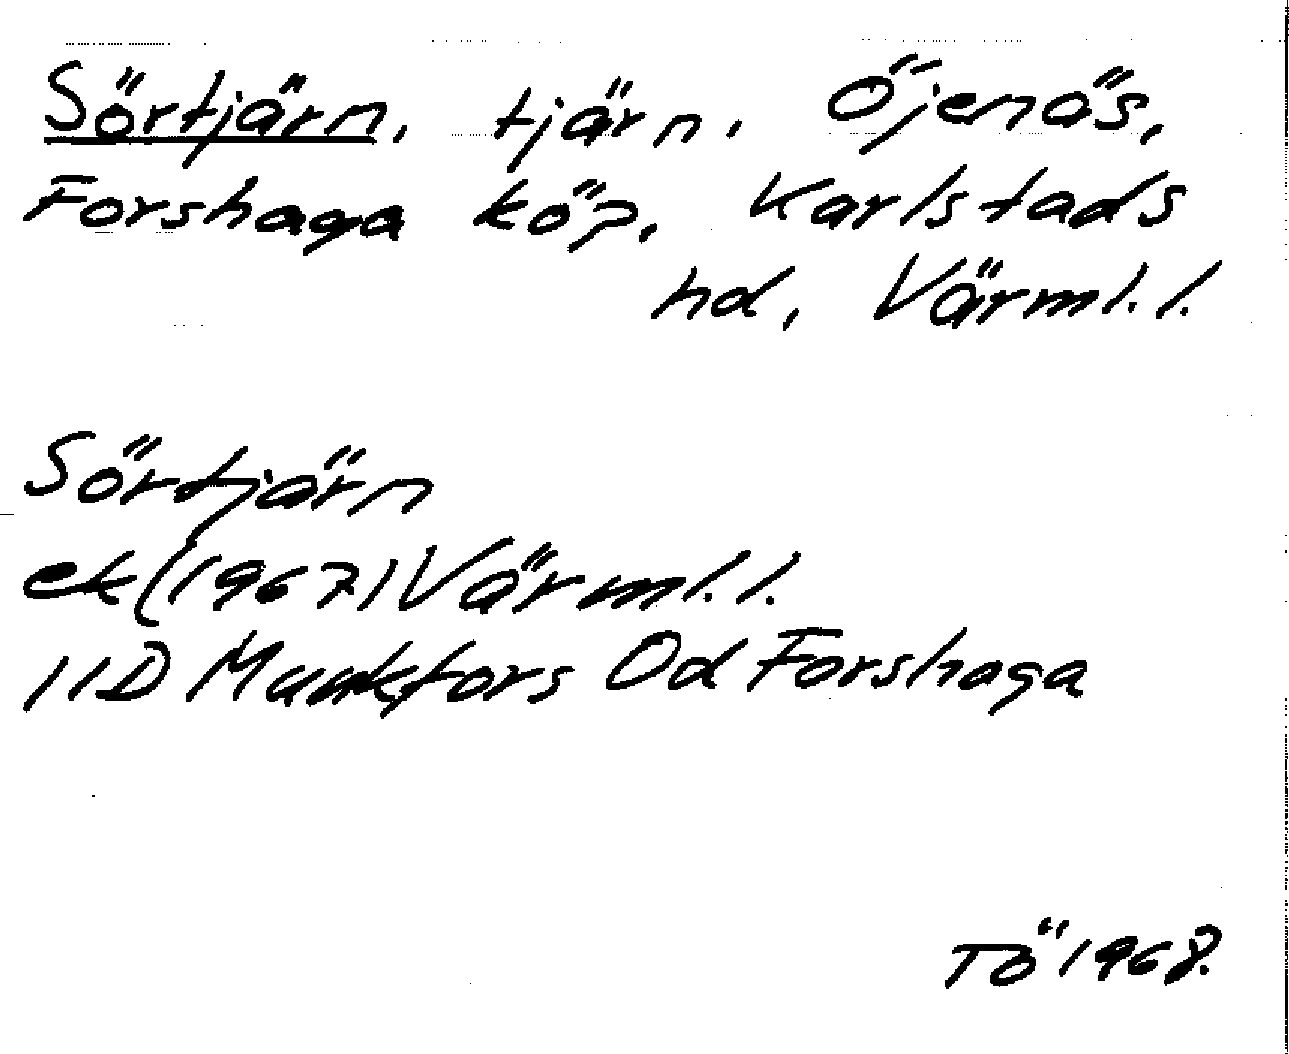 Sörtjärn, tjärn, Öjenäs,
Forshaga köp, Karlstads
hd, Värml. l.
Sörtjärn
ek (1967) Värml. l.
11D Munkfors Od Forshaga
TÖ 1968.